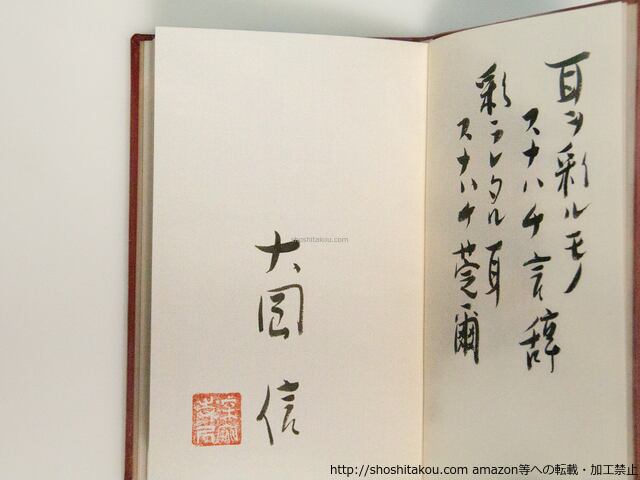 耳ヲ彩ルモノ
スナハチ言辞
彩ラレタル耳
スナハチ莞爾
大岡信
shoshitakou.com
http://shoshitakou.com amazon等への転載・加工禁止